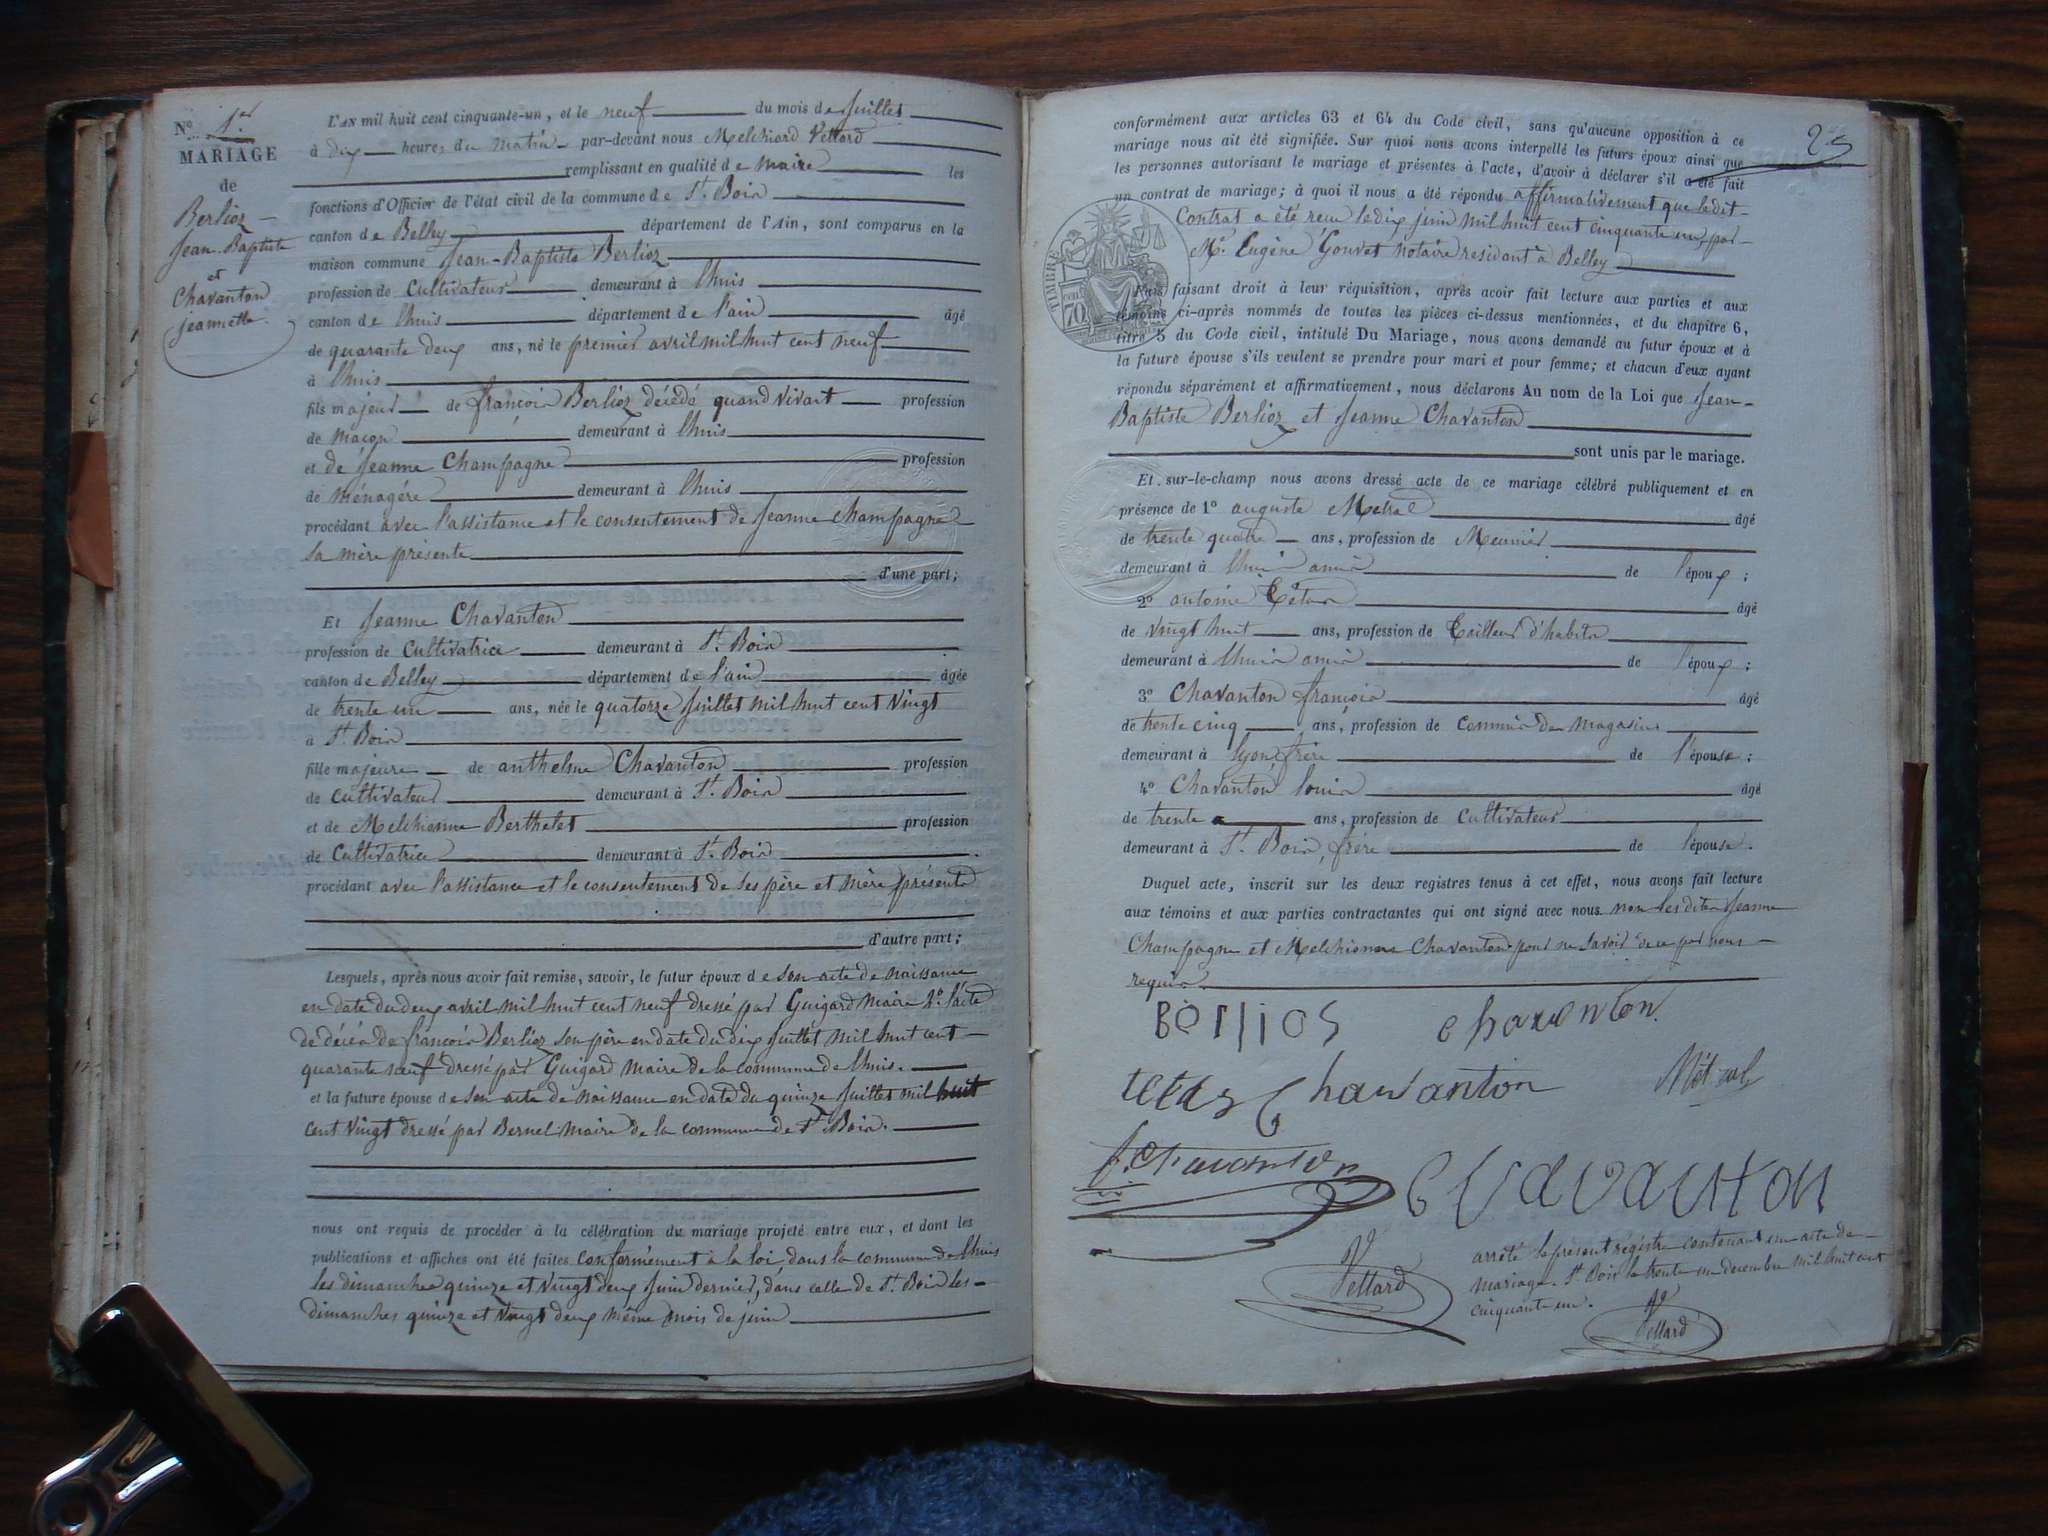 N.º 1.er
MARIAGE
de
Berlioz
Jean-Baptiste
et
Chavanton
jeannette
L'AN mil huit cent cinquante-un, et le neuf du mois de juillet
à dix heures du matin par-devant nous Melchiord Vettard
remplissant en qualité de maire les
fonctions d'Officier de l'état civil de la commune de St. Bois
canton de Belley département de l'Ain, sont comparus en la
maison commune Jean-Baptiste Berlioz
profession de Cultivateur demeurant à lhuis
canton de lhuis département de l'ain âgé
de quarante deux ans, né le premier avril mil huit cent neuf
à lhuis
fils majeur de françois Berlioz décédé quand vivait profession
de maçon demeurant à lhuis
et de Jeanne Champagne profession
de ménagère demeurant à lhuis
procédant avec l'assistance et le consentement de Jeanne champagne
sa mère présente
d'une part;
Et Jeanne Chavanton
profession de Cultivatrice demeurant à St. Bois
canton de Belley département de l'ain âgée
de trente un ans, née le quatorze juillet mil huit cent vingt
à St. Bois
fille majeure de anthelme Chavanton profession
de Cultivateur demeurant à St. Bois
et de Melchionne Berthelet profession
de Cultivatrice demeurant à St. Bois
procédant avec l'assistance et le consentement de ses père et mère présents
d'autre part;
Lesquels, après nous avoir fait remise, savoir, le futur époux de son acte de naissance
en date du deux avril mil huit cent neuf dressé par Guigard maire 2º. l'acte
de décés de françois Berlioz son père en date du dix juillet mil huit cent
quarante neuf dressé par Guigard Maire de la commune de lhuis.
et la future épouse de son acte de naissance en date du quinze juillet mil huit
cent vingt dressé par Bernel maire de la commune de St. Bois.
nous ont requis de procéder à la célébration du mariage projeté entre eux, et dont les
publications et affiches ont été faites conformément à la loi, dans la commune de lhuis
les dimanches quinze et vingt deux juin dernier, dans celle de St. Bois les
dimanches quinze et vingt deux même mois de juin
25
conformément aux articles 63 et 64 du Code civil, sans qu'aucune opposition à ce
mariage nous ait été signifiée. Sur quoi nous avons interpellé les futurs époux ainsi que
les personnes autorisant le mariage et présentes à l'acte, d'avoir à déclarer s'il a été fait
un contrat de mariage; à quoi il nous a été répondu affirmativement que ledit
Contrat a été reçu le dix juin mil huit cent cinquante un, par
Me. Eugène Gouvet notaire résidant à Belley
TIMBRE
70 cent
Puis faisant droit à leur réquisition, après acoir fait lecture aux parties et aux
témoins ci-après nommés de toutes les pièces ci-dessus mentionnées, et du chapitre 6,
titre 5 du Code civil, intitulé Du Mariage, nous avons demandé au futur époux et à
la future épouse s'ils veulent se prendre pour mari et pour femme; et chacun d'eux ayant
répondu séparément et affirmativement, nous déclarons Au nom de la Loi que Jean-
Baptiste Berlioz et Jeanne Chavanton
sont unis par le mariage.
Et sur-le-champ nous avons dressé acte de ce mariage célébré publiquement et en
présence de 1º auguste Metral âgé
de trente quatre ans, profession de Meunier
demeurant à lhuis amis de l'époux;
2º antoine Tétas âgé
de vingt huit ans, profession de Tailleur d'habits
demeurant à lhuis amis de l'époux;
3º Chavanton françois âgé
de trente cinq ans, profession de commis de magasin
demeurant à lyon frère de l'épouse;
4º Chavanton louis âgé
de trente ans, profession de Cultivateur
demeurant à St. Bois, frère de l'épouse.
Duquel acte, inscrit sur les deux registres tenus à cet effet, nous avons fait lecture
aux témoins et aux parties contractantes qui ont signé avec nous non les dites Jeanne
Champagne et Melchionne Chavanton pour ne savoir de ce par nous
requis.
Berlios chavanton
tetas Chavanton Métral
f. Chavanton chavanton
Vettard
arrêté le présent régistre contenant un acte de
mariage. St. Bois le trente un decembre mil huit cent
cinquante un.
Vettard